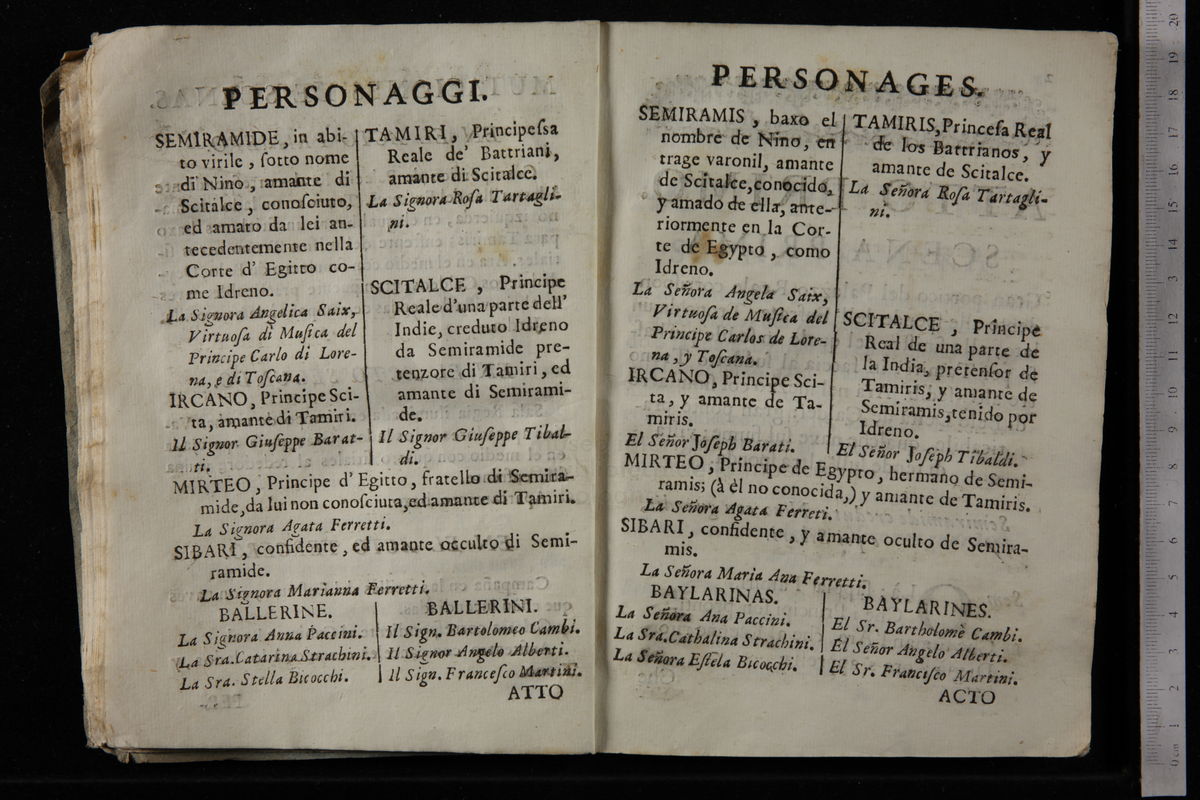 PERSONAGGI.
SEMIRAMIDE, in abi-
to virile, ſotto nome
di Nino, amante di
Scitalce, conoſciuto,
ed amato da lei an-
tecedentemente nella
Corte d' Egitto co-
me Idreno.
La Signora Angelica Saix,
Virtuoſa di Muſica del
Principe Carlo di Lore-
na, e di Toſcana.
IRCANO, Principe Sci-
ta, amante di Tamiri.
Il Signor Giuſeppe Barat-
ti.
TAMIRI, Principeſsa
Reale de' Battriani,
amante di Scitalce.
La Signora Roſa Tartagli-
ni.
SCITALCE, Principe
Reale d'una parte dell'
Indie, creduto Idreno
da Semiramide pre-
tenzore di Tamiri, ed
amante di Semirami-
de.
Il Signor Giuſeppe Tibal-
di.
MIRTEO, Principe d' Egitto, fratello di Semira-
mide, da lui non conoſciuta, ed amante di Tamiri.
La Signora Agata Ferretti.
SIBARI, confidente, ed amante occulto di Semi-
ramide.
La Signora Marianna Ferretti.
BALLERINE.
La Signora Anna Paccini.
La Sra. Catarina Strachini.
La Sra. Stella Bicocchi.
BALLERINI.
Il Sign. Bartolomeo Cambi.
Il Signor Angelo Alberti.
Il Sign. Franceſco Martini.
ATTO
PERSONAGES.
SEMIRAMIS, baxo el
nombre de Nino, en
trage varonil, amante
de Scitalce, conocido,
y amado de ella, ante-
riormente en la Cor-
te de Egypto, como
Idreno.
La Señora Angela Saix,
Virtuoſa de Muſica del
Principe Carlos de Lore-
na, y Toſcana.
IRCANO, Principe Sci-
ta, y amante de Ta-
miris.
El Señor Joſeph Barati.
TAMIRIS, Princeſa Real
de los Battrianos, y
amante de Scitalce.
La Señora Roſa Tartagli-
ni.
SCITALCE, Principe
Real de una parte de
la India, pretenſor de
Tamiris, y amante de
Semiramis, tenido por
Idreno.
El Señor Joſeph Tibaldi.
MIRTEO, Principe de Egypto, hermano de Semi-
ramis; (à él no conocida,) y amante de Tamiris.
La Señora Agata Ferreti.
SIBARI, confidente, y amante oculto de Semira-
mis.
La Señora Maria Ana Ferretti.
BAYLARINAS.
La Señora Ana Paccini.
La Sra. Cathalina Strachini.
La Señora Eſtela Bicocchi.
BAYLARINES.
El Sr. Bartholomè Cambi.
El Señor Angelo Alberti.
El Sr. Franciſco Martini.
ACTO
0 cm 1 2 3 4 5 6 7 8 9 10 11 12 13 14 15 16 17 18 19 20